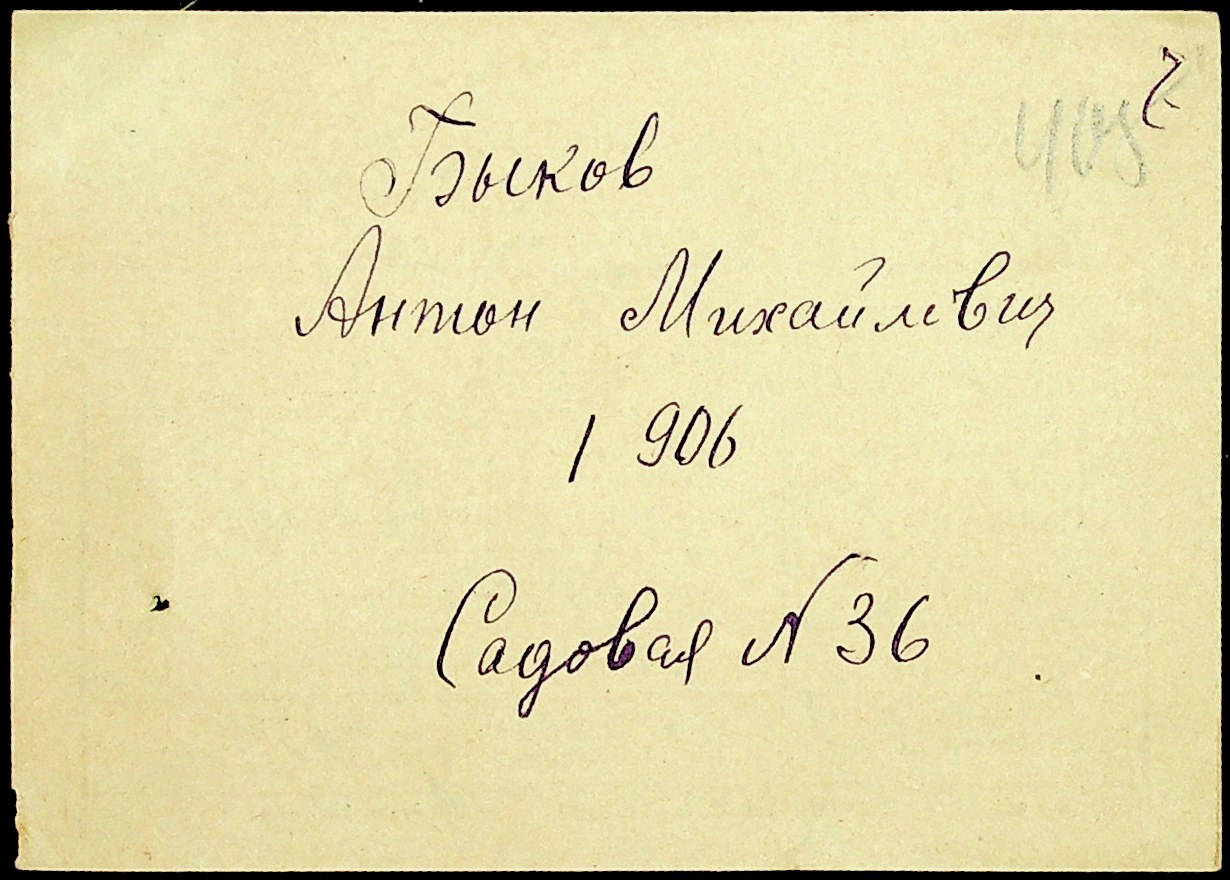 Быков
Антон Михайлович
1906
Садовая N 36